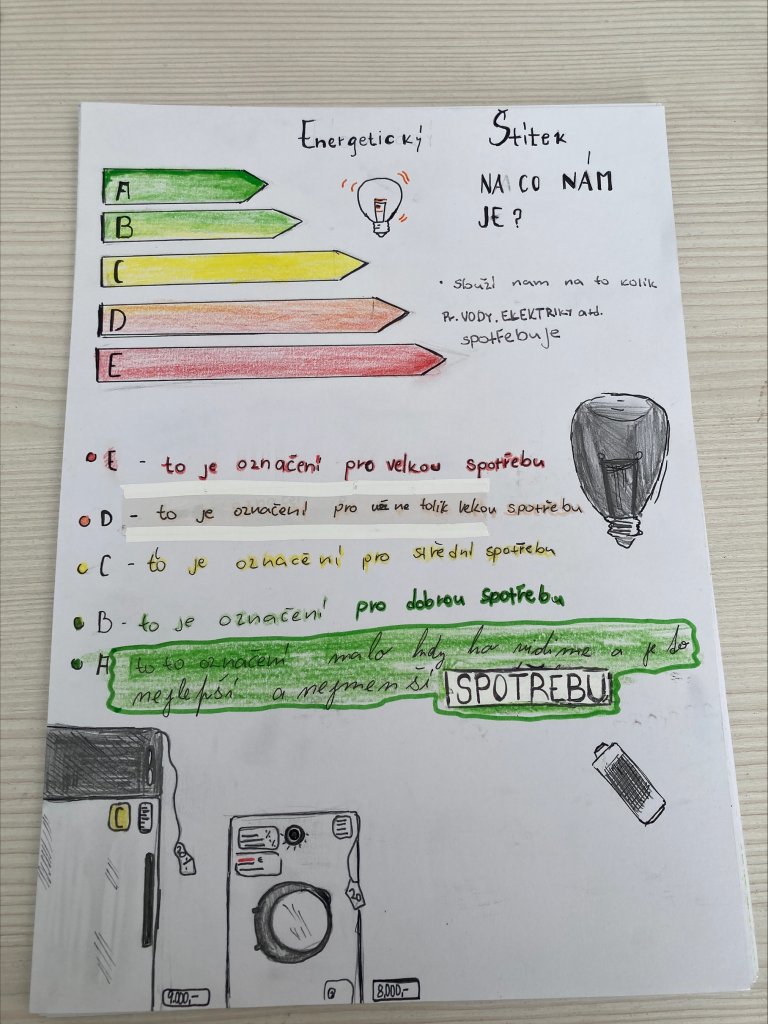 Energetický Štítek
A
B
C
D
E
NA CO NÁM
JE?
• slouží nam na to kolik
Př. VODY, ELEKTRIKY atd.
spotřebuje
E - to je označení pro velkou spotřebu
D - to je označení pro už ne tolik velkou spotřebu
C - to je označení pro střední spotřebu
B - to je označení pro dobrou spotřebu
A toto označení malo kdy ho vidíme a je to
nejlepší a nejmenší SPOTŘEBU
C
20%
20
9.000,-
8.000,-